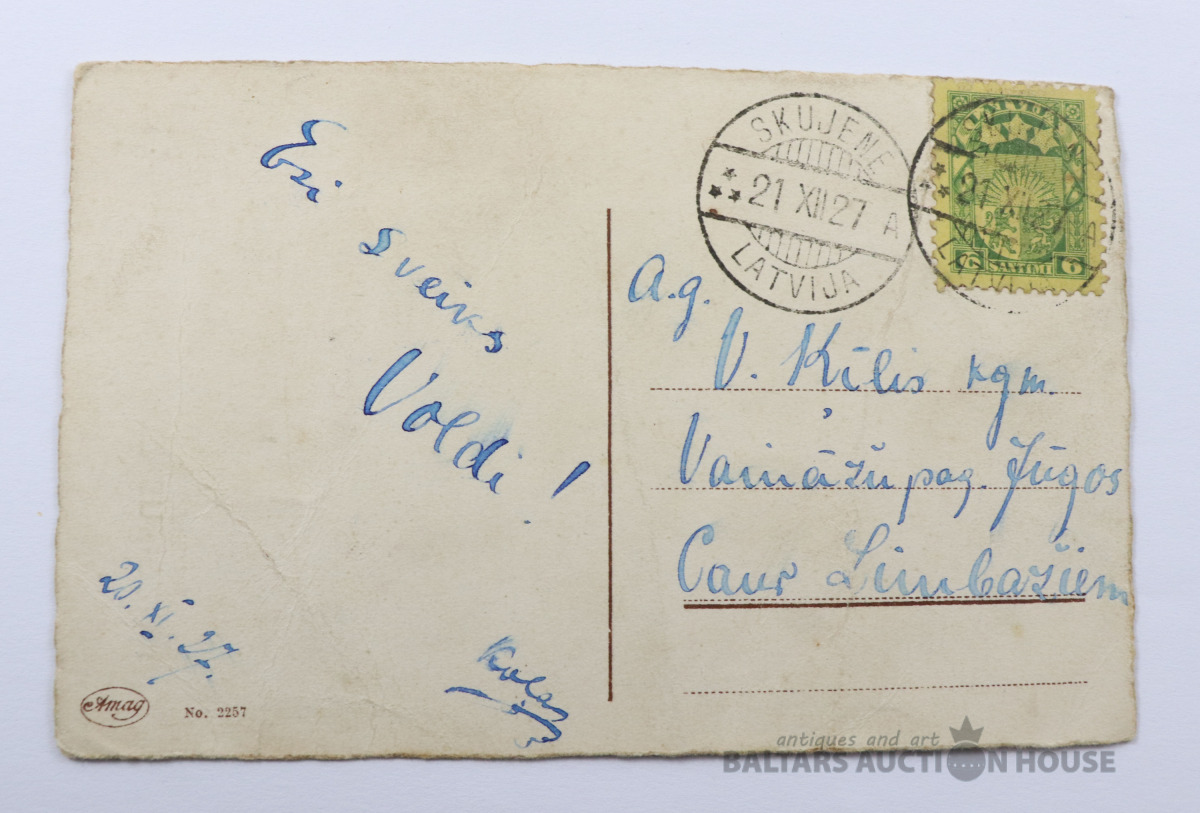 Esi
sveiks
Voldi!
20. XI. 27.
Amag
No. 2257
SKUJENE
21 XII 27 A
LATVIJA
LATVIJA
21 XII 27
LATVIJA
6 SANTIMI 6
A.g.
V. Ķīlis kgm.
Vaināžu pag. Jūgos
Caur Limbažiem
antiques and art
BALTARS AUCTION HOUSE